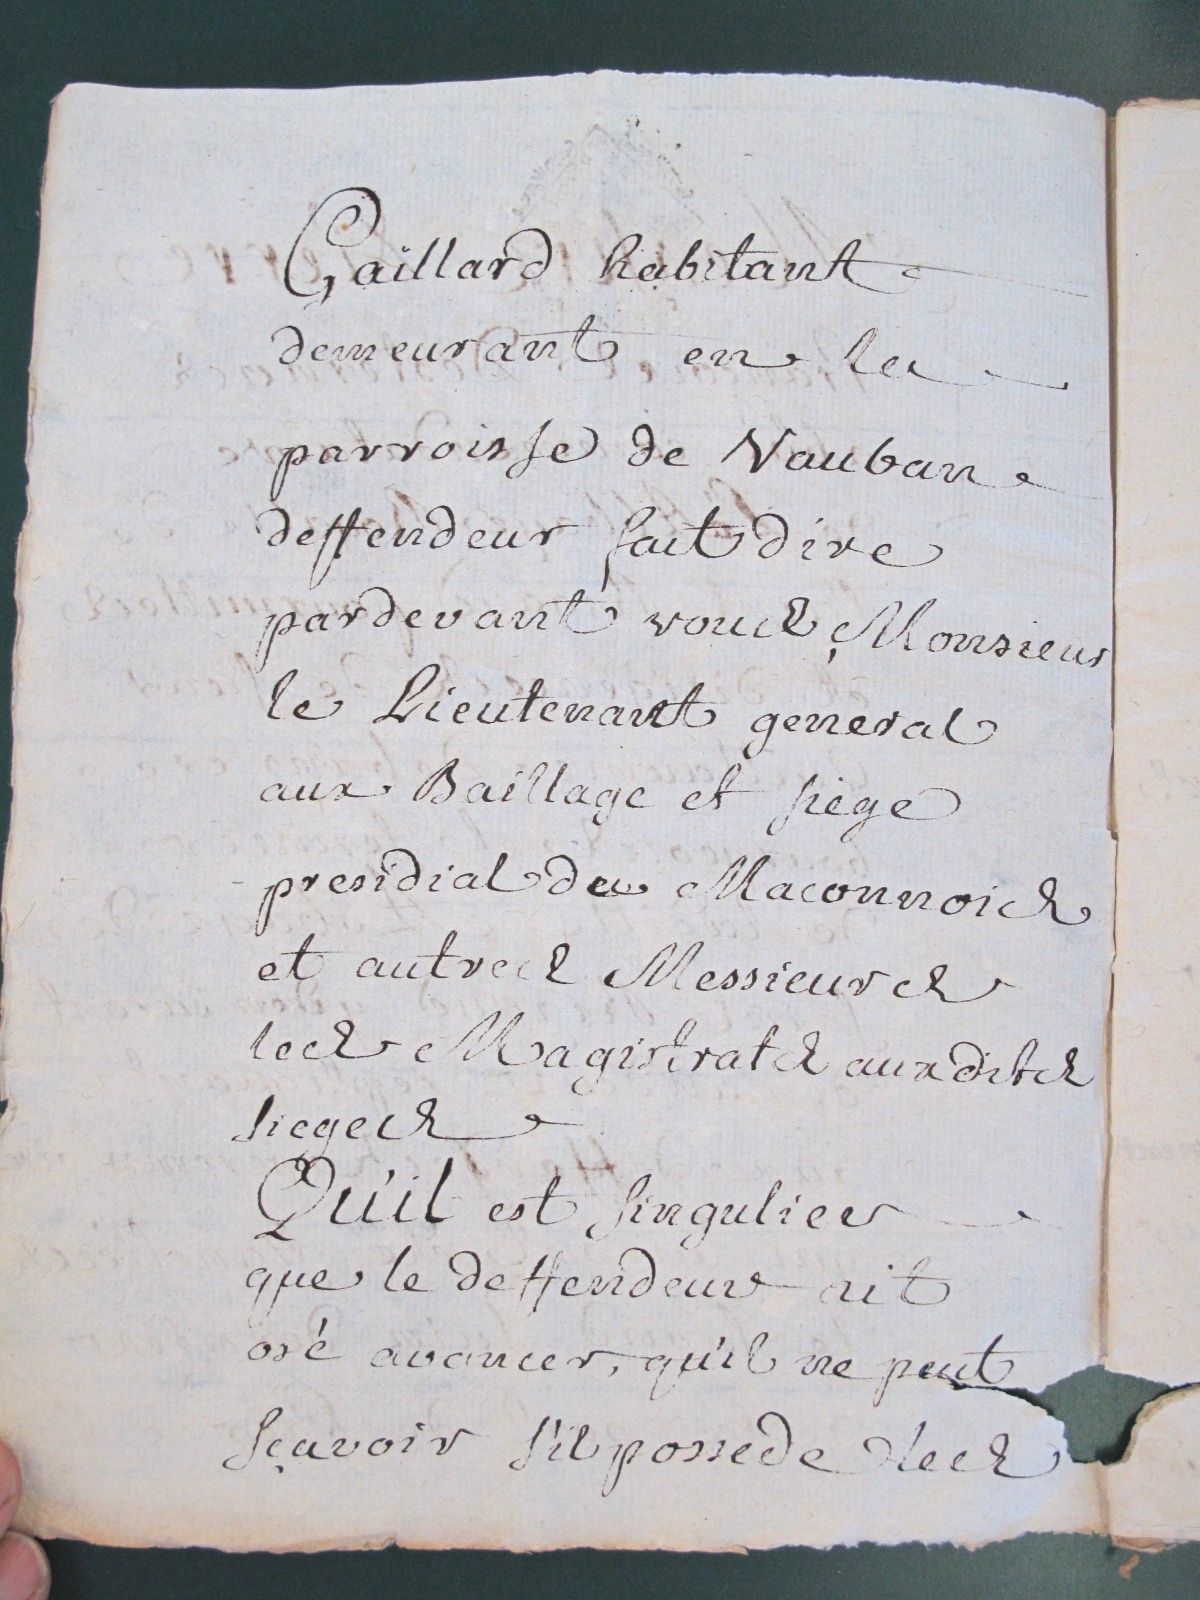 Gaillard habitant
demeurant en la
parroisse de Vauban
deffendeur fait dire
pardevant vous Monsieur
le Lieutenant general
aux Baillage et siege
presidial du Maconnois
et autres Messieurs
les Magistrats auxdits
sieges
Qu'il est singulier
que le deffendeur ait
osé avancer, qu'il ne peut
sçavoir s'il possede des